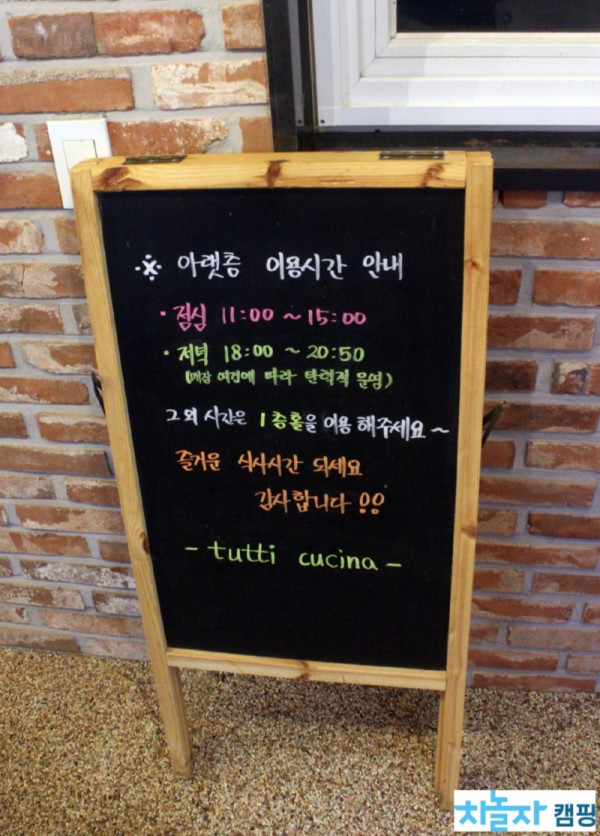 ※ 아랫층 이용시간 안내
· 점심 11:00 ~ 15:00
· 저녁 18:00 ~ 20:50
(매장 여건에 따라 탄력적 운영)
그 외 시간은 1층홀을 이용 해주세요 ~
즐거운 식사시간 되세요
감사합니다 !!
- tutti cucina -
차놀자 캠핑